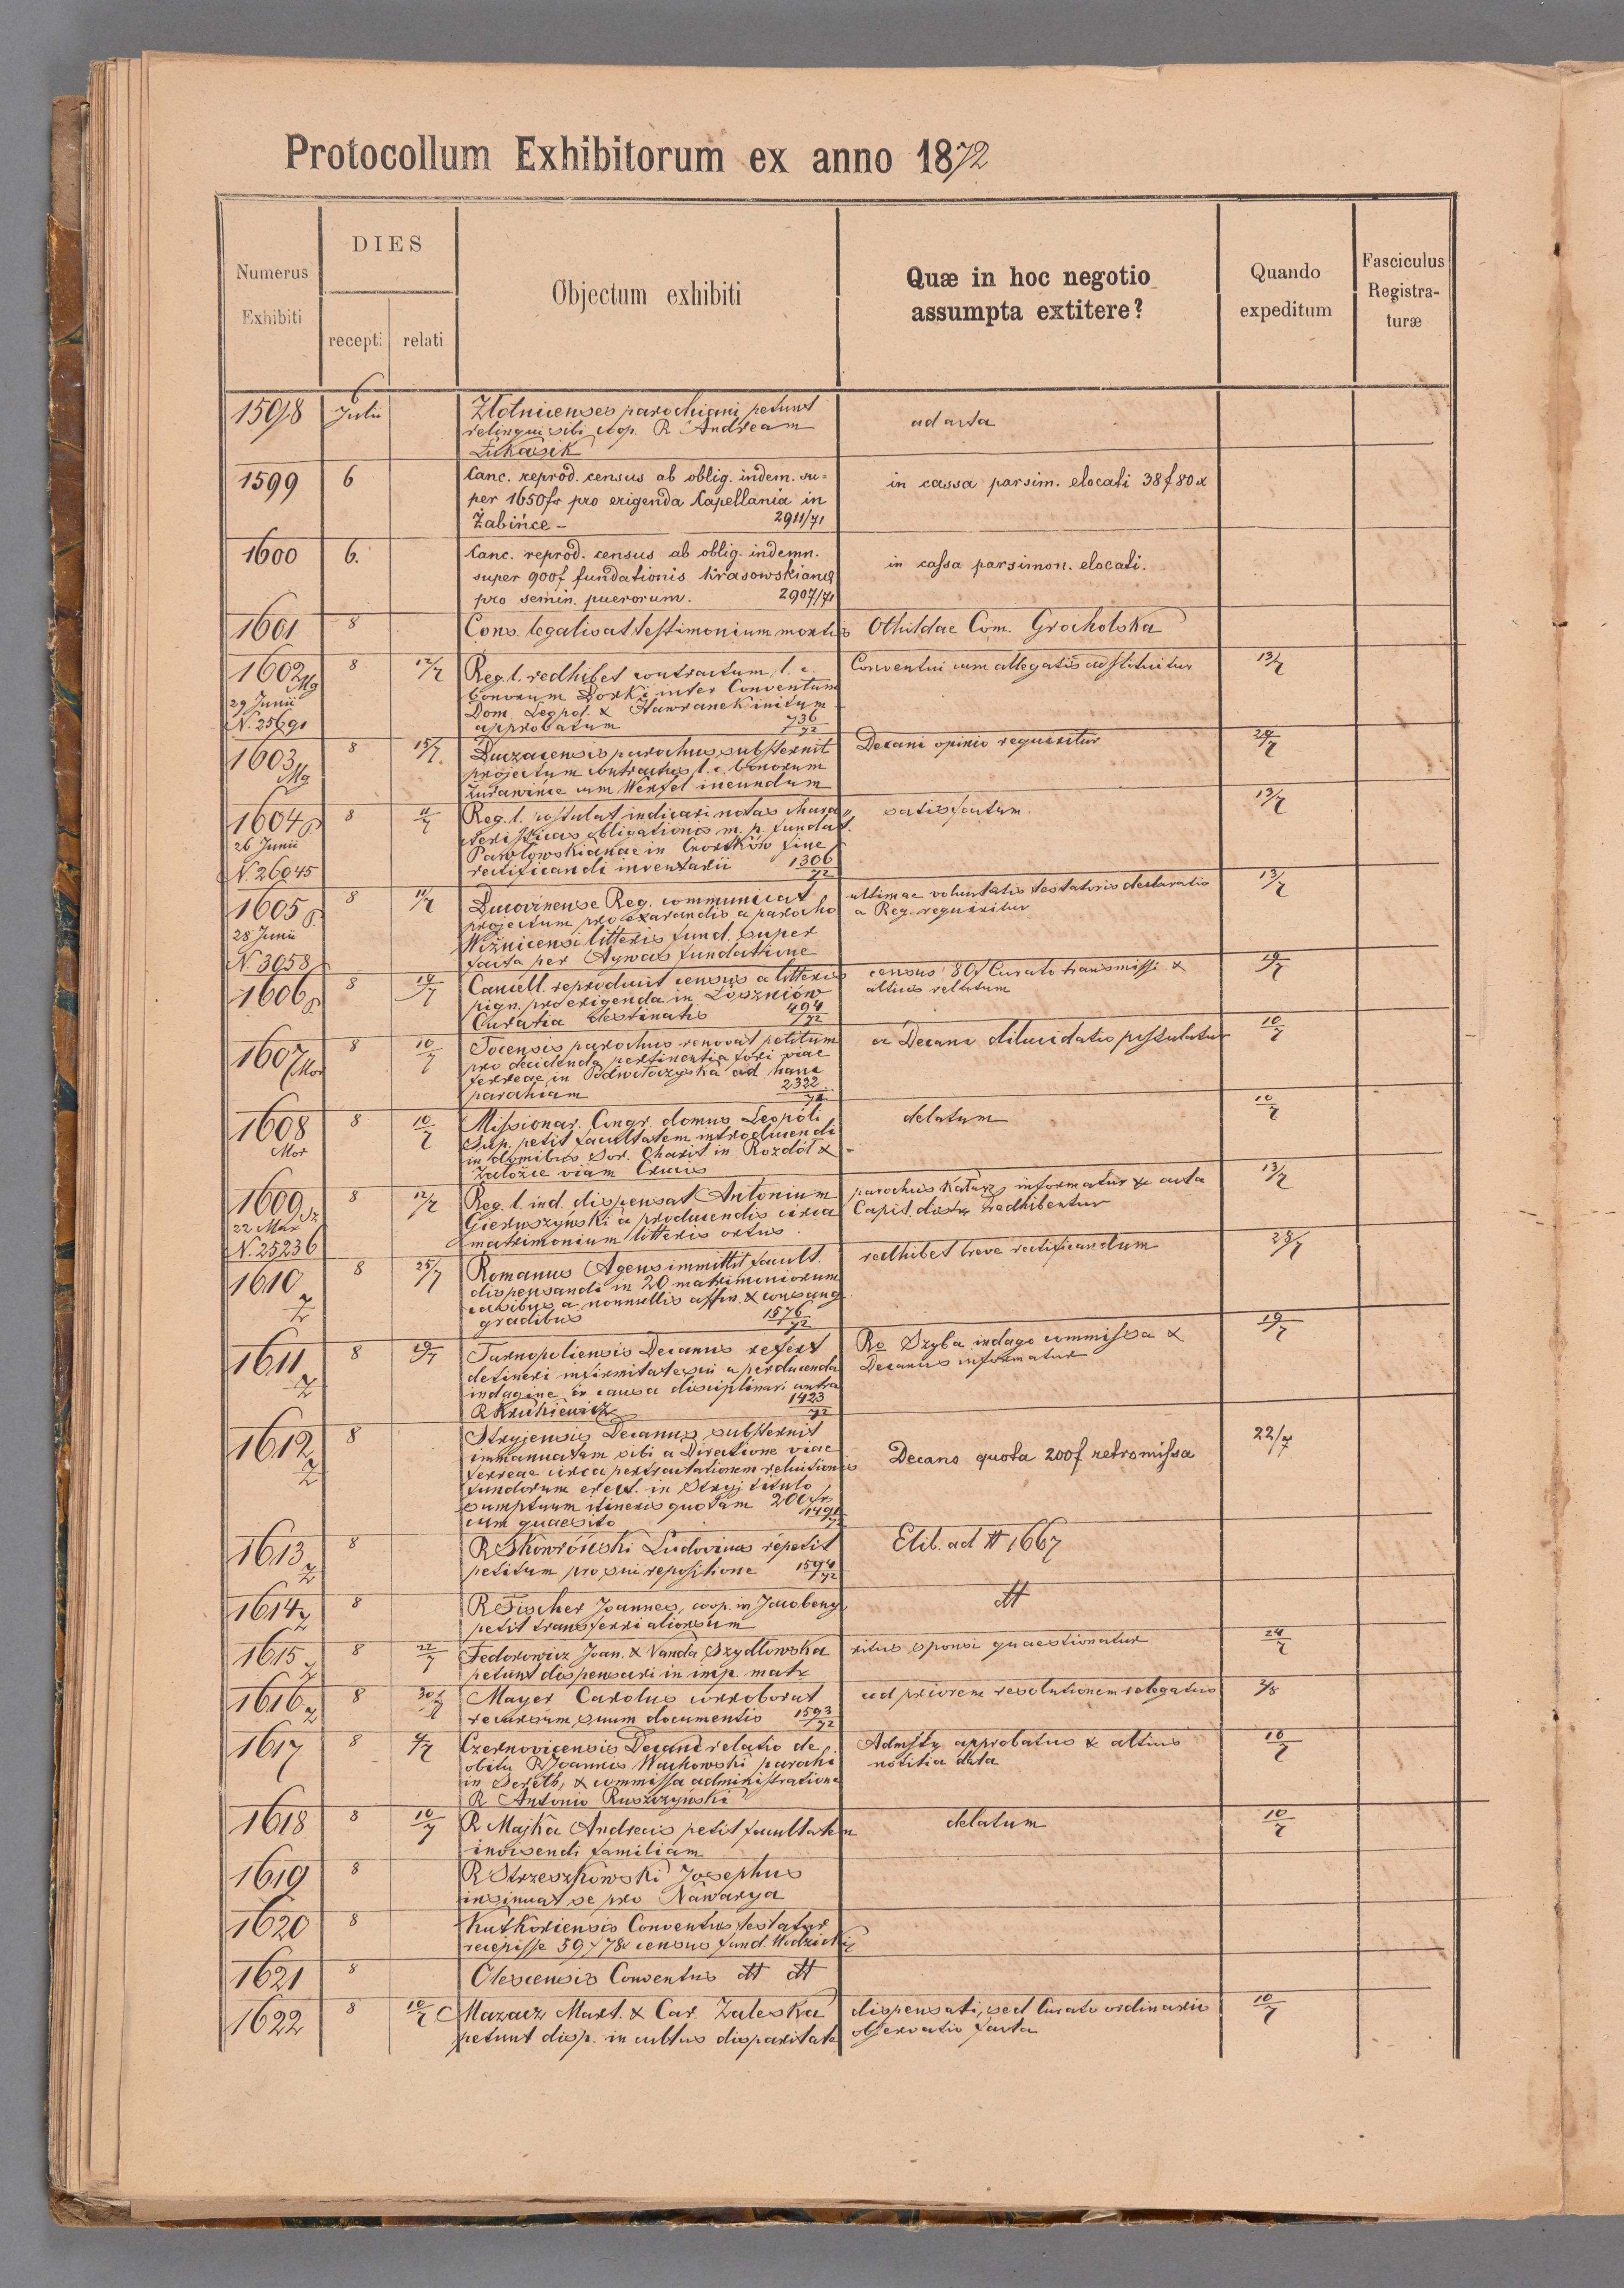 Protocollum Exhibitorum ex anno 1872
Numerus Exhibiti
DIES
recepti
relati
Objectum exhibiti
Quæ in hoc negotio
assumpta extitere?
Quando
expeditum
Fasciculus
Registra-
turæ
1598 6 Julii
Złotnicenses parochiani petunt
relinqui sibi coop. R Andream
Łukasik
ad acta
1599 6
Canc. reprod. census ab oblig. indem. su=
per 1650fr pro erigenda Capellania in
Żabińce – 2911/71
in cassa parsim. elocati 38f 80x
1600 6.
Canc. reprod. census ab oblig. indemn.
super 900f fundationis Krasowskianae
pro semin. puerorum. 2907/71
in cassa parsimon. elocati.
1601 8
Cons. legalisat testimonium mortis
Othildae Com. Grocholska
1602 Mg 8 12/7
29 Junii
N. 25691
Reg. l. redhibet contractum l. c.
bonorum Borki inter Conventum
Dom. Leopol. & Hawranek initum
approbatum 736/72
Conventui cum allegatis restituitur
13/7
1603 Mg 8 15/7
Buczacensis parochus substernit
projectum contractus l. c. bonorum
Żurawińce cum Wexfel ineundum
Decani opinio requiritur
1604 8 11/7
26 Junii
N. 26045
Reg. l. postulat indicari notas chara„
cteristicas obligationis m. p. fundat.
Pawłowskianae in Czortków fine
rectificandi inventarii 1306/72
satisfactum.
13/7
1605 8 11/7
28 Junii
N. 3058
Bucovinense Reg. communicat
projectum pro exarandis a parocho
Wiżnicensi litteris fund. super
facta per Aywas fundatione
ultimae voluntatis testatoris declaratio
a Reg. requiritur
13/7
1606 8 19/7
Cancell. reproducit census a litteris
pign. pro erigenda in Łoszniów
Curatia destinatis 494/72
census 80f Curato transmissi &
altius relatum
19/7
1607 Mor 8 10/7
Tocensis parochus renovat petitum
pro decidenda pertinentia fori viae
ferreae in Podwołoczyska ad hanc
parochiam 2322/72
a Decano dilucidatio postulatur
10/7
1608 Mor 8 10/7
Missionar. Congr. domus Leopoli
Sup. petit facultatem introducendi
in domibus Sor. Charit in Rozdół &
Załoźce viam Crucis
delatum
10/7
1609 8 12/7
22 Mar
N. 25236
Reg. l. ind. dispensat Antonium
Gieruszyński a producendis circa
matrimonium litteris ortus.
parochus Katusz informatur & acta
Capit. distr. redhibentur
13/7
1610 8 25/7
Romanus Agens immittit facult.
dispensandi in 20 matrimoniorum
casibus a nonnullis affin. & consang.
gradibus 1576/72
redhibet breve rectificandum
28/7
1611 8 19/7
Tarnopoliensis Decanus refert
detineri infirmitate sui a perducenda
indagine in causa disciplinari contra
R Krukiewicz 1423/72
Ro Szyba indago commissa &
Decanus informatur
19/7
1612 8
Stryjensis Decanus substernit
immanuatam sibi a Directione viae
ferreae circa pertractationem reluitionis
fundorum erect. in Stryj titulo
sumptuum itineris quotam 200fr
cum quaesito 1491/72
Decano quota 200f retromissa
22/7
1613 8
R Skowroński Ludovicus repetit
petitum pro sui repositione 1594/72
Elib. ad # 1667
1614 8
R Fischer Joannes, coop. in Jacobeny
petit transferri aliorsum
tt
1615 8 22/7
Fedorowicz Joan. & Vanda Szydłowska
petunt dispensari in imp. matr.
ritus sponsi quaestionatur
24/7
1616 8 30/7
Mayer Carolus corroborat
recursum suum documentis 1593/72
ad priorem resolutionem relegatus
2/8
1617 8 9/7
Czernovicensis Decani relatio de
obitu R Joannis Wackowski parochi
in Sereth, & commissa administratione
R Antonio Ruszczyński
Admsty approbatus & altius
notitia data
10/7
1618 8 10/7
R Majka Andreas petit facultatem
invisendi familiam
delatum
10/7
1619 8
R Strzeszkowski Josephus
insinuat se pro Nawarya
1620 8
Kutkoriensis Conventus testatur
recepisse 59f 78x census fund. Wodzickij
1621 8
Olescensis Conventus tt tt
1622 8 10/7
Mazacz Mart. & Car. Zaleska
petunt disp. in cultus disparitate
dispensati, sed Curato ordinario
observatio facta
10/7